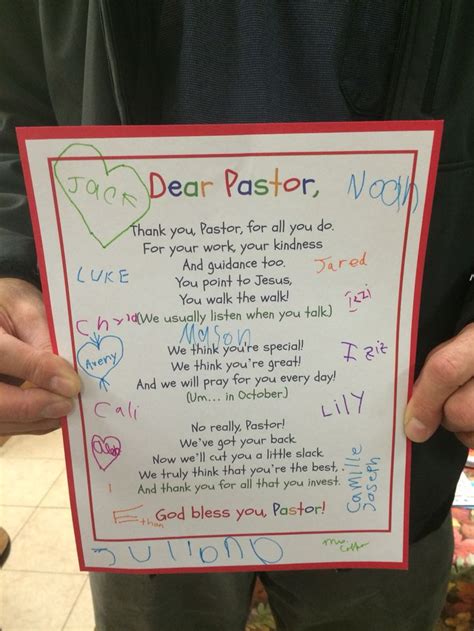 Jack
Dear Pastor,
Noah
Thank you, Pastor, for all you do.
For your work, your kindness
And guidance too.
Jared
LUKE
You point to Jesus,
You walk the walk!
Izzi
(We usually listen when you talk.)
Mason
We think you're special!
Izik
Avery
We think you're great!
And we will pray for you every day!
(Um... in October.)
Cali
LILY
No really, Pastor!
We've got your back
Now we'll cut you a little slack
We truly think that you're the best,
And thank you for all that you invest.
Camille
Joseph
Ethan
God bless you, Pastor!